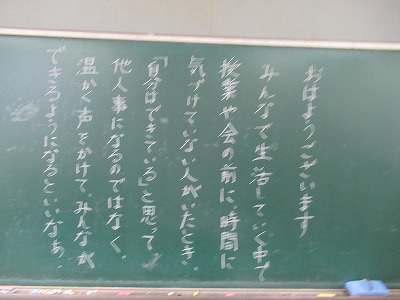 おはようございます
みんなで生活していく中で
授業や会の前に、時間に
気づけていない人がいたとき、
「自分はできている」と思って、
他人事になるのではなく、
温かく声をかけて、みんなが
できるようになるといいなぁ。